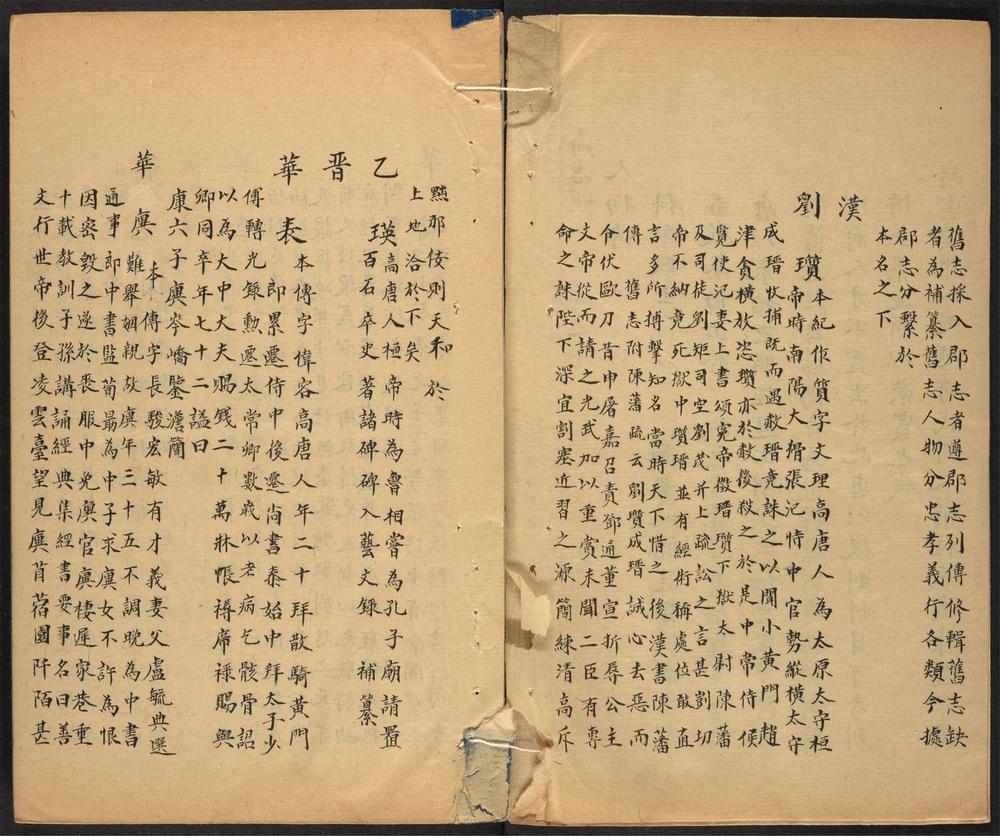 舊志採入郡志者遵郡志列傳修輯舊志缺
者為補纂舊志人物分忠孝義行各類今據
郡志分繫於
本名之下
漢
劉瓆本紀作質字文理高唐人為太原太守桓
帝時南陽大猾張汜恃中官勢縱橫太守
成瑨收捕既而遇赦瑨竟誅之以聞小黃門趙
津貪橫放恣瓆亦於赦後殺之於是中常侍侯
覽使汜妻上書頌冤帝徵瑨瓆下獄太尉陳藩
及司徒劉矩司空劉茂并上疏訟之言甚劉切
帝不納竟死獄中瓆瑨並有經術稱處位敢直
言多所搏擊知名當時天下惜之後漢書陳藩
傳舊志附陳藩疏云劉瓆成瑨誠心去惡而
令伏歐刀昔申屠嘉召責鄧通董宣折辱公主
文帝從而請之光武加以重賞未聞二臣有專
命之誅陛下深宜割塞近習之源簡練清高斥
黜邪佞則天和於
上地洽於下矣
乙瑛高唐人桓帝時為魯相嘗為孔子廟請置
百石卒史著諸碑碑入藝文錄補纂
晋
華表本傳字偉容高唐人年二十拜散騎黃門
郎累遷侍中後遷尚書泰始中拜太子少
傅轉光錄勳遷太常卿數歲以老病乞骸骨詔
以為大中大夫賜錢二十萬牀帳褥席祿賜與
卿同卒年七十二謚曰
康六子廙岑嶠鑒澹簡
華廙本傳字長駿宏敏有才義妻父盧毓典選
難舉姻親故廙年三十五不調晚為中書
通事郎中書監荀最為中子求廙女不許為恨
因密毀之遂於喪服中免廙官廙棲遲家巷重
十載教訓子孫講誦經典集經書要事名曰善
文行世帝後登凌雲臺望見廙苜蓿園阡陌甚